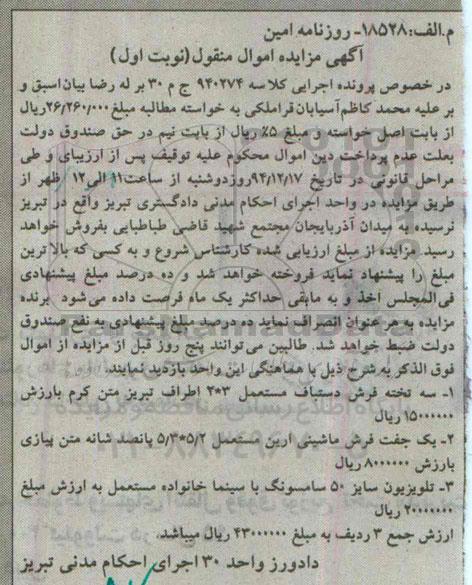 م.الف:۱۸۵۲۸- روزنامه امین
آگهی مزایده اموال منقول(نوبت اول)
در خصوص پرونده اجرایی کلاسه ۹۴۰۲۷۴ ج م ۳۰ بر له رضا بیان اسبق و
بر علیه محمد کاظم آسیابان قراملکی به خواسته مطالبه مبلغ ۲۶٫۲۶۰٫۰۰۰ریال
از بابت اصل خواسته و مبلغ ۵٪ ریال از بابت نیم در حق صندوق دولت
بعلت عدم پرداخت دین اموال محکوم علیه توقیف پس از ارزیابی و طی
مراحل قانونی در تاریخ ۹۴٫۱۲٫۱۷روزدوشنبه از ساعت۱۱الی۱۲ ظهر از
طریق مزایده در واحد اجرای احکام مدنی دادگستری تبریز واقع در تبریز
نرسیده به میدان آذربایجان مجتمع شهید قاضی طباطبایی بفروش خواهد
رسید مزایده از مبلغ ارزیابی شده کارشناس شروع و به کسی که بالاترین
مبلغ را پیشنهاد نماید فروخته خواهد شد و ده درصد مبلغ پیشنهادی
فی‌المجلس اخذ و به مابقی حداکثر یک ماه فرصت داده می‌شود برنده
مزایده به هر عنوان انصراف نماید ده درصد مبلغ پیشنهادی به نفع صندوق
دولت ضبط خواهد شد. طالبین می‌توانند پنج روز قبل از مزایده از اموال
فوق الذکر به شرح ذیل با هماهنگی این واحد بازدید نمایند.
۱- سه تخته فرش دستباف مستعمل ۳*۲ اطراف تبریز متن کرم بارزش
۱۵۰۰۰۰۰۰ ریال
۲- یک جفت فرش ماشینی ارین مستعمل ۵/۲*۵/۳ پانصد شانه متن پیازی
بارزش ۸۰۰۰۰۰۰ ریال
۳- تلویزیون سایز ۵۰ سامسونگ با سینما خانواده مستعمل به ارزش مبلغ
۲۰۰۰۰۰۰۰ ریال
ارزش جمع ۳ ردیف به مبلغ ۴۳۰۰۰۰۰۰ ریال میباشد.
دادورز واحد ۳۰ اجرای احکام مدنی تبریز